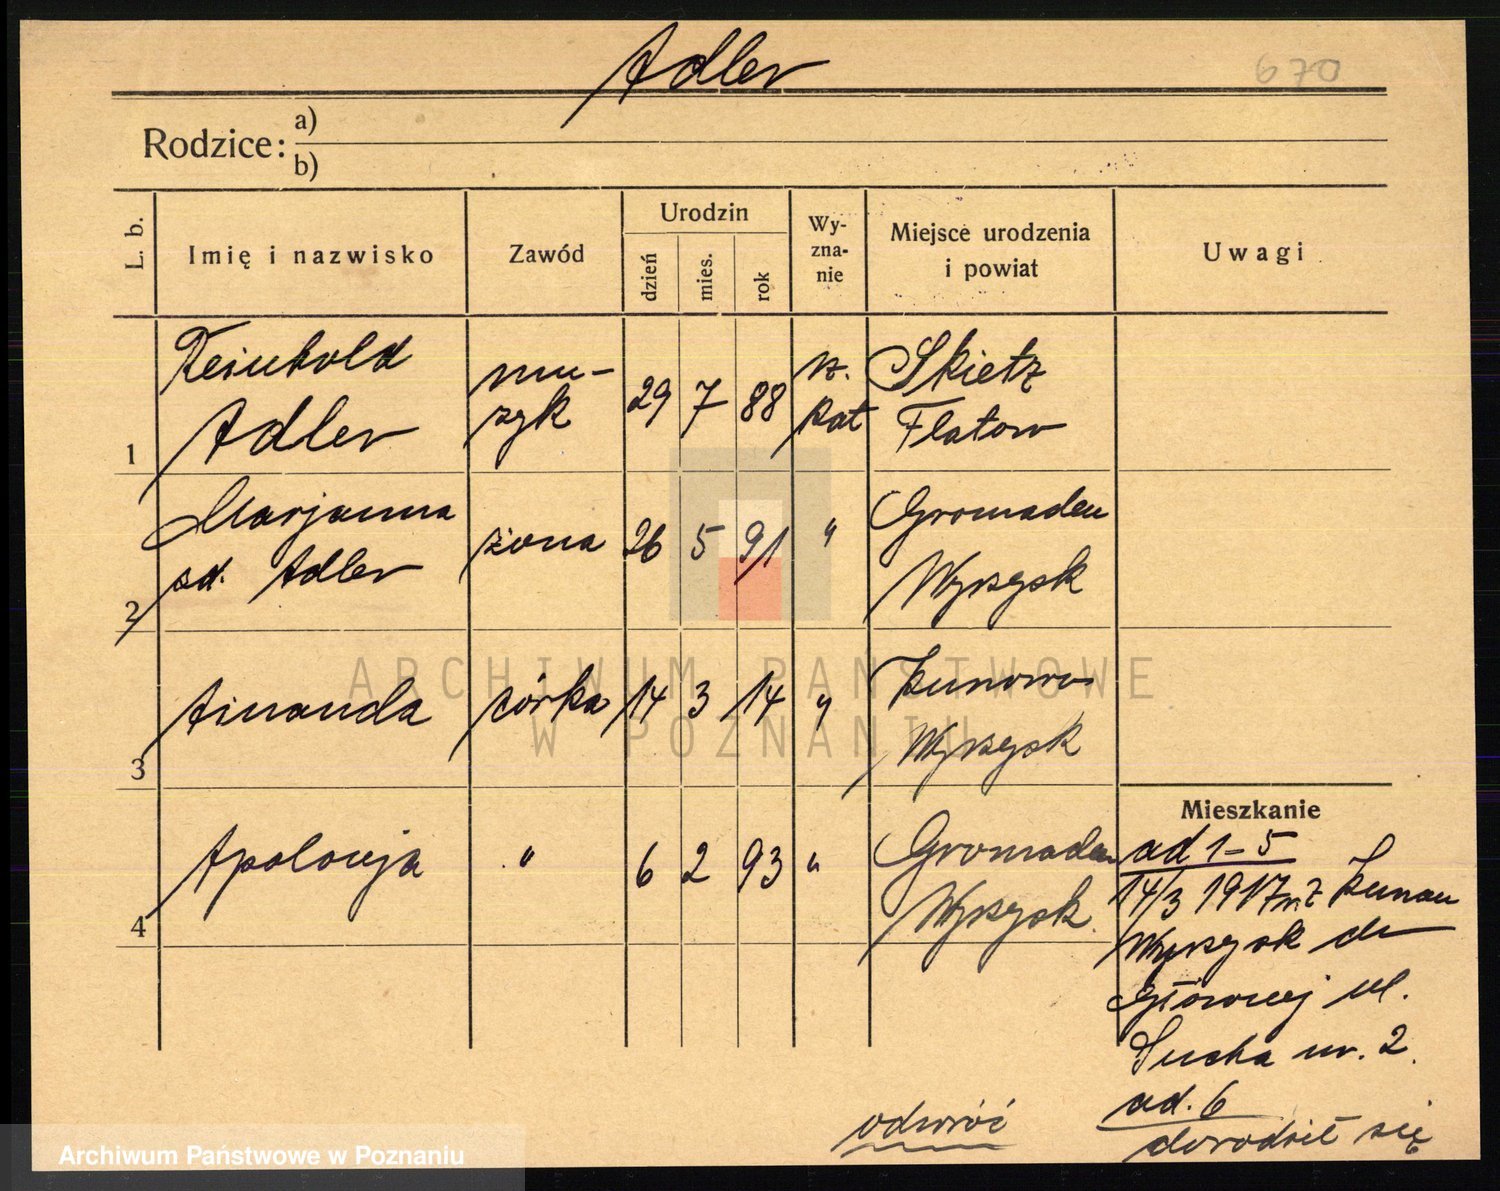 Adler
670
Rodzice: a)
b)
L. b.
Imię i nazwisko
Zawód
Urodzin
dzień
mies.
rok
Wy-
zna-
nie
Miejsce urodzenia
i powiat
Uwagi
1
Reinhold
Adler
mu-
zyk
29 7 88
rz.
kat
Skietz
Flatow
2
Marjanna
zd. Adler
żona
26 5 91
"
Gromaden
Wyrzysk
3
Amanda
córka
14 3 14
"
Kunowo
Wyrzysk
4
Apolonja
"
6 2 93
"
Gromaden
Wyrzysk.
Mieszkanie
ad 1-5
14/3 1917 r. z Kunau
Wyrzysk do
Głównej ul.
Sucha nr. 2.
ad. 6
dorodził się
odwróć
ARCHIWUM PAŃSTWOWE
W POZNANIU
Archiwum Państwowe w Poznaniu